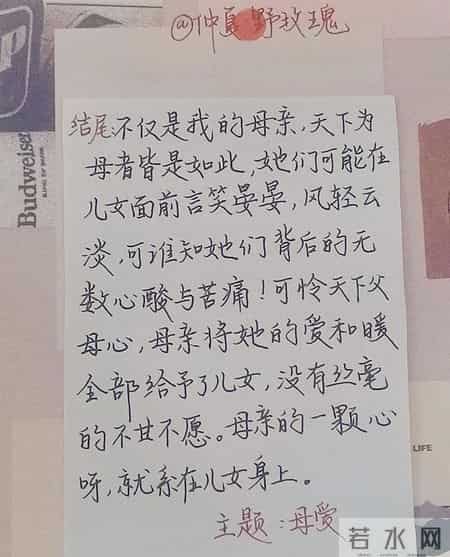 @仲夏野玫瑰
Budweiser
结尾不仅是我的母亲,天下为
母者皆是如此,她们可能在
儿女面前言笑晏晏,风轻云
淡,可谁知她们背后的无
数心酸与苦痛!可怜天下父
母心,母亲将她的爱和暖
全部给予了儿女,没有丝毫
的不甘不愿。母亲的一颗心
呀,就系在儿女身上。
LIFE
主题:母爱
若水网